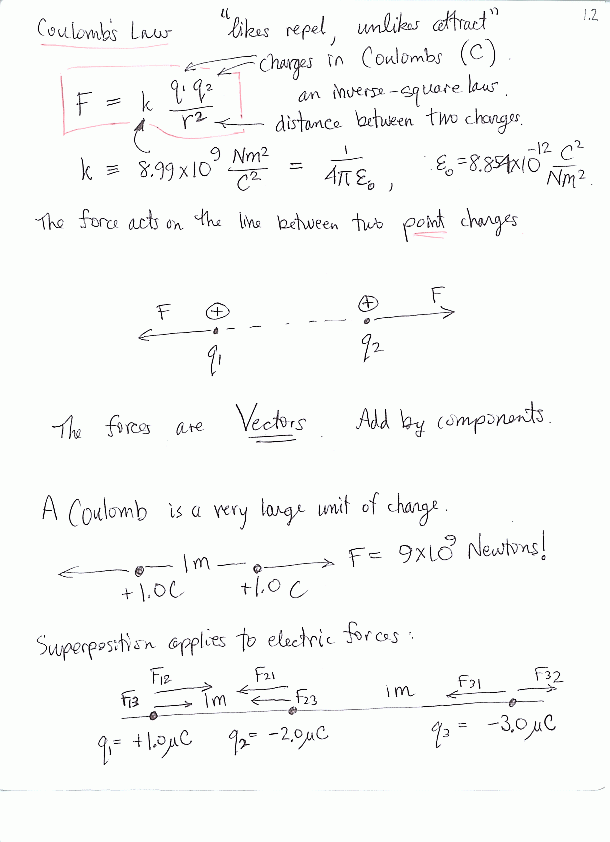 Coulomb's Law "likes repel, unlikes attract" 1.2
charges in Coulombs (C).
F = k q1 q2 / r² an inverse-square law.
distance between two charges.
k ≡ 8.99x10⁹ Nm²/C² = 1/4πε₀ , ε₀ = 8.854x10⁻¹² C²/Nm².
The force acts on the line between two point charges
F + + F
q1 q2
The forces are Vectors. Add by components.
A Coulomb is a very large unit of charge.
1m F = 9x10⁹ Newtons!
+1.0C +1.0 C
Superposition applies to electric forces:
F12 F21 F31 F32
F13 1m F23 1m
q1= +1.0μC q2= -2.0μC q3 = -3.0μC